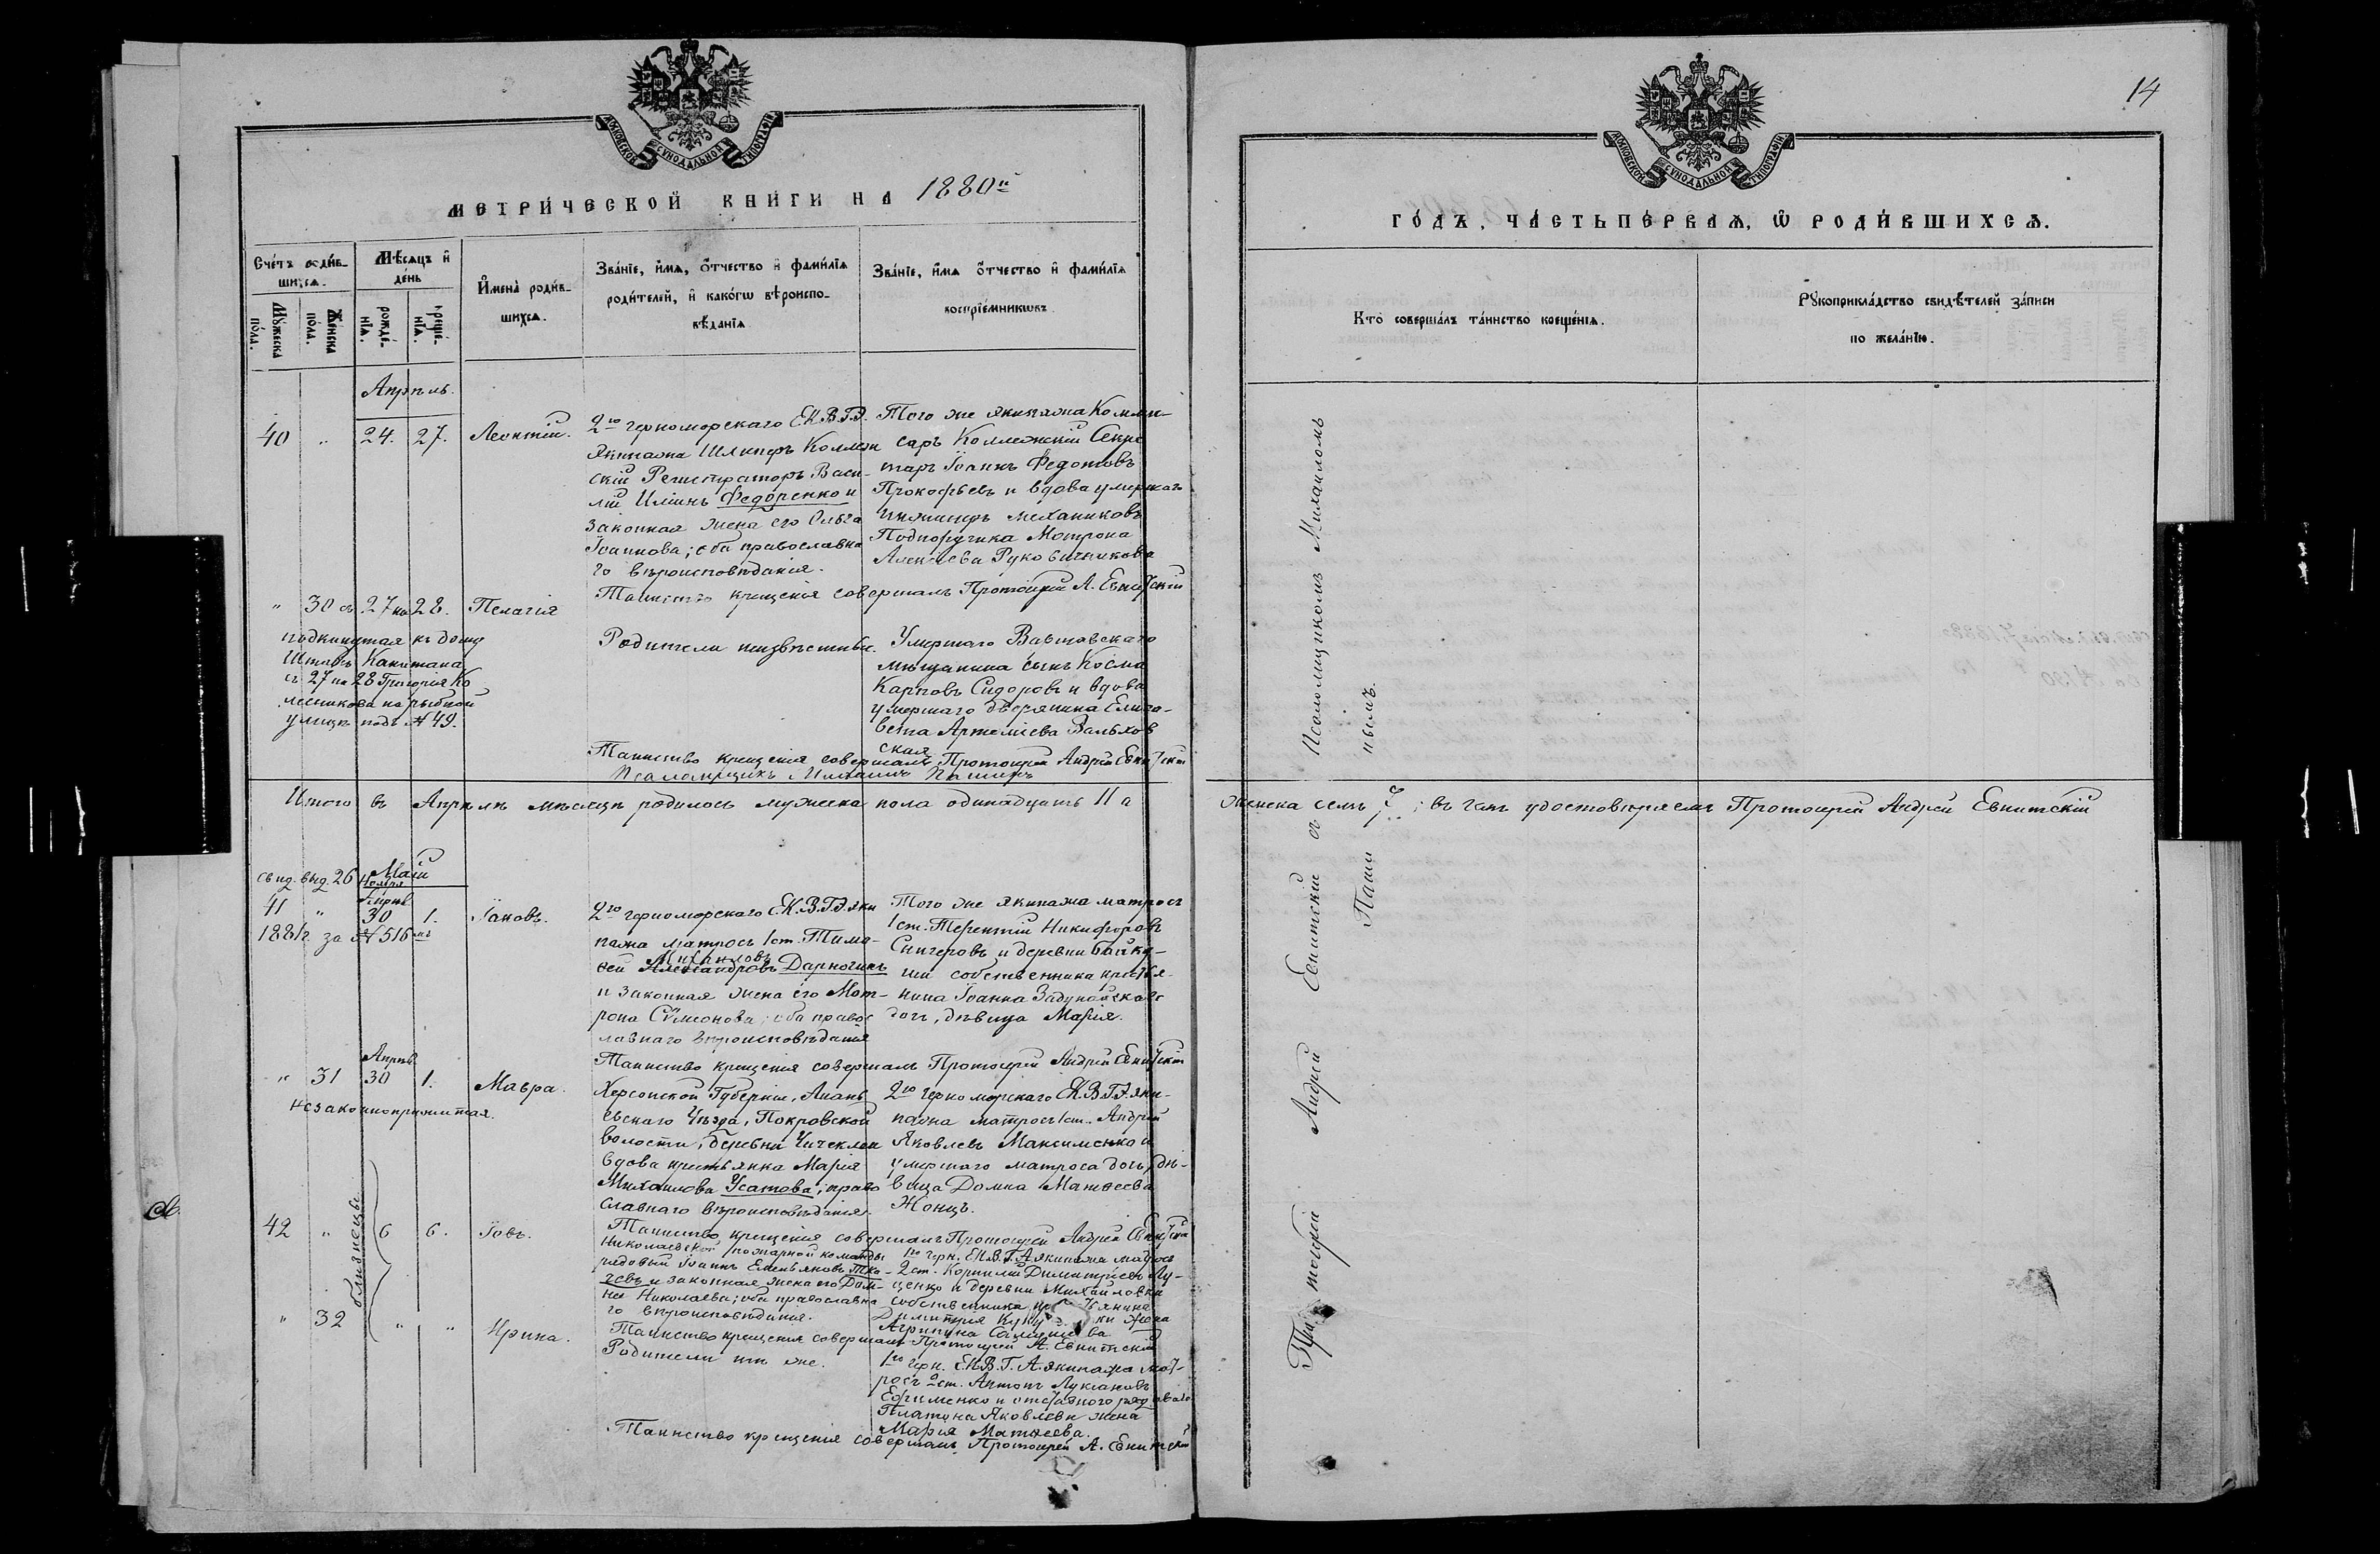 МОСКОВСКОЙ СѴНОДАЛЬНОЙ ТИПОГРАФІИ
МЕТРИ́ЧЕСКОЙ КНИ́ГИ НА 1880й
Сче́тъ роди́в-
шихсѧ.
Мꙋ́жеска по́ла.
Же́нска по́ла.
Мѣ́сѧцъ и҆ де́нь
рожде́-
нїѧ.
креще́-
нїѧ.
И҆мена̀ роди́в-
шихсѧ.
Зва́нїе, и҆́мѧ, ѻ҆́тчество и҆ фами́лїѧ
роди́телей, и҆ како́гѡ вѣроиспо-
вѣ́данїѧ
Зва́нїе, и҆́мѧ ѻ҆́тчество и҆ фами́лїѧ
воспрїе́мникѡвъ
Апрѣль.
40 " 24. 27. Леонтій.
2го черноморскаго Е.К.В.Г.Э.
Якипажа Шкиперъ Коллеж
скій Регистраторъ Васи-
лій Иліинъ Федоренко и
законная жена его Ольга
Іоаннова; оба православна
го вѣроисповѣданія.
Того же якипажа Комми-
саръ Коллежскій Секре
таръ Іоаннъ Федотовъ
Прокофьевъ и вдова умершаго
инжинеръ механиковъ
Подпоручика Мотрона
Алексѣева Рукавичникова
Таинство крещенія совершалъ Протоіерей А. Евнитскій
" 30 съ 27 на 28. Пелагія
подкинутая къ дому
Штабъ Капитана
съ 27 на 28 Григорія Ко
лесникова на рыбной
улицѣ подъ № 49.
Родители неизвѣстны.
Умершаго Варшавскаго
мѣщанина сынъ Косма
Карповъ Сидоровъ и вдова
умершаго дворянина Елиса-
вета Артеміева Вальхов
ская
Таинство крещенія совершалъ Протоіерей Андрей Евнитскій
Псаломщикъ Михаилъ Пашинъ
Итого въ Апрѣлѣ мѣсяцѣ родилось мужеска пола одинадцать 11 а
свид. выд. 26 Ноября
Май
41 " Апрѣл 30 1. Іаковъ.
1881г за № 516мъ
2го черноморскаго Е.К.В.Г.Э яки
пажа матросъ 1 ст. Тимо-
фей Александровъ Михаиловъ Дарногинъ
и законная жена его Мот-
рона Сѵмеонова; оба правос
лавнаго вѣроисповѣданія
Того же якипажа матросъ
1 ст. Терентій Никифоровъ
Снигеровъ и деревни
собственника крестья-
нина Іоанна Задунайскаго
дочь, дѣвица Марія.
Таинство крещенія совершалъ Протоіерей Андрей Евнитскій
" 31 Апрѣл 30 1. Мавра.
Незаконноприжитая.
Херсонской Губерніи, Анань
евскаго Уѣзда, Покровской
волости, деревни Чичеклеи
вдова крестьянка Марія
Михаилова Усатова; право
славнаго вѣроисповѣданія.
2го черноморскаго Е.К.В.Г.Э яки-
пажа матросъ 1 ст. Андрей
Яковлевъ Максименко и
умершаго матроса дочь, дѣ-
вица Домна Матвеева
Жонцъ.
Таинство крещенія совершалъ Протоіерей Андрей Евнитскій
42 " близнецы 6 6. Іовъ.
Николаевской пожарной команды
рядовый Іоаннъ Емельяновъ Тка-
чевъ и законная жена его Дом-
на Николаева; оба православна
го вѣроисповѣданія.
1го черн. Е.К.В.Г.А якипажа матросъ
2 ст. Корнилій Димитріевъ Лу-
ценко и деревни Михайловки
собственника
Димитрія жена
Агрипина
Таинство крещенія совершалъ Протоіерей А. Евнитскій
" 32 " " Ирина.
Родители тѣ же.
1го черн. Е.К.В.Г.А. якипажа мат-
росъ 2 ст. Антонъ Лукіановъ
Ефименко и отставного рядоваго
Платона Яковлева жена
Марія Матвеева.
Таинство крещенія совершалъ Протоіерей А. Евнитскій
14
МОСКОВСКОЙ СѴНОДАЛЬНОЙ ТИПОГРАФІИ
ГО́ДЪ, ЧА́СТЬ ПЕ́РВАѦ, Ѡ҆ РОДИ́ВШИХСѦ.
Кто̀ соверша́лъ та́инство креще́нїѧ.
Рꙋкоприкла́дство свидѣ́телей за́писи
по жела́нїю.
женска семь 7; въ чемъ удостовѣряемъ Протоіерей Андрей Евнитскій
Протоіерей Андрей Евнитскій съ Псаломщикомъ Михаиломъ
Пашинымъ.